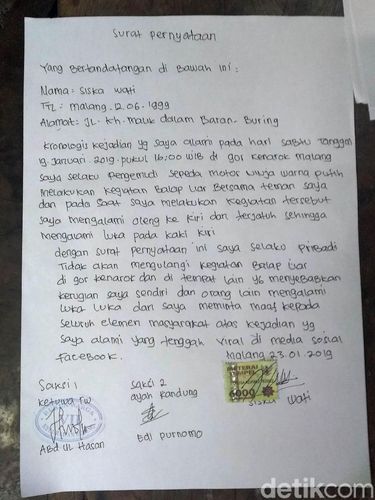 Surat Pernyataan
Yang Bertandatangan di Bawah ini :
Nama : Siska Wati
TTL : malang, 12.06.1999
Alamat : JL. kh. malik dalam Baran - Buring
kronologis kejadian yg saya allami pada hari sabtu Tanggal
19. januari. 2019. pukul 16;00 WIB di gor kenarok malang
saya selaku pengemudi sepeda motor warna putih
melakukan kegiatan Balap liar Bersama teman saya
dan pada saat saya melakukan kegiatan tersebut
saya mengalami oleng ke kiri dan terjatuh sehingga
mengalami luka pada kaki kiri
dengan surat pernyataan ini saya selaku pribadi
Tidak akan mengulangi kegiatan Balap liar
di gor kenarok dan di tempat lain yg menyebabkan
kerugian saya sendiri dan orang lain mengalami
luka luka dan saya meminta maaf kepada
seluruh elemen masyarakat atas kejadian yg
saya alami yang tengah viral di media sosial
facebook.
malang 23.01.2019
Saksi 1
ketuwa rw
Abd ul Hasan
saksi 2
ayah kandung
Edi purnomo
METERAI
TEMPEL
6000
siska wati
detikcom